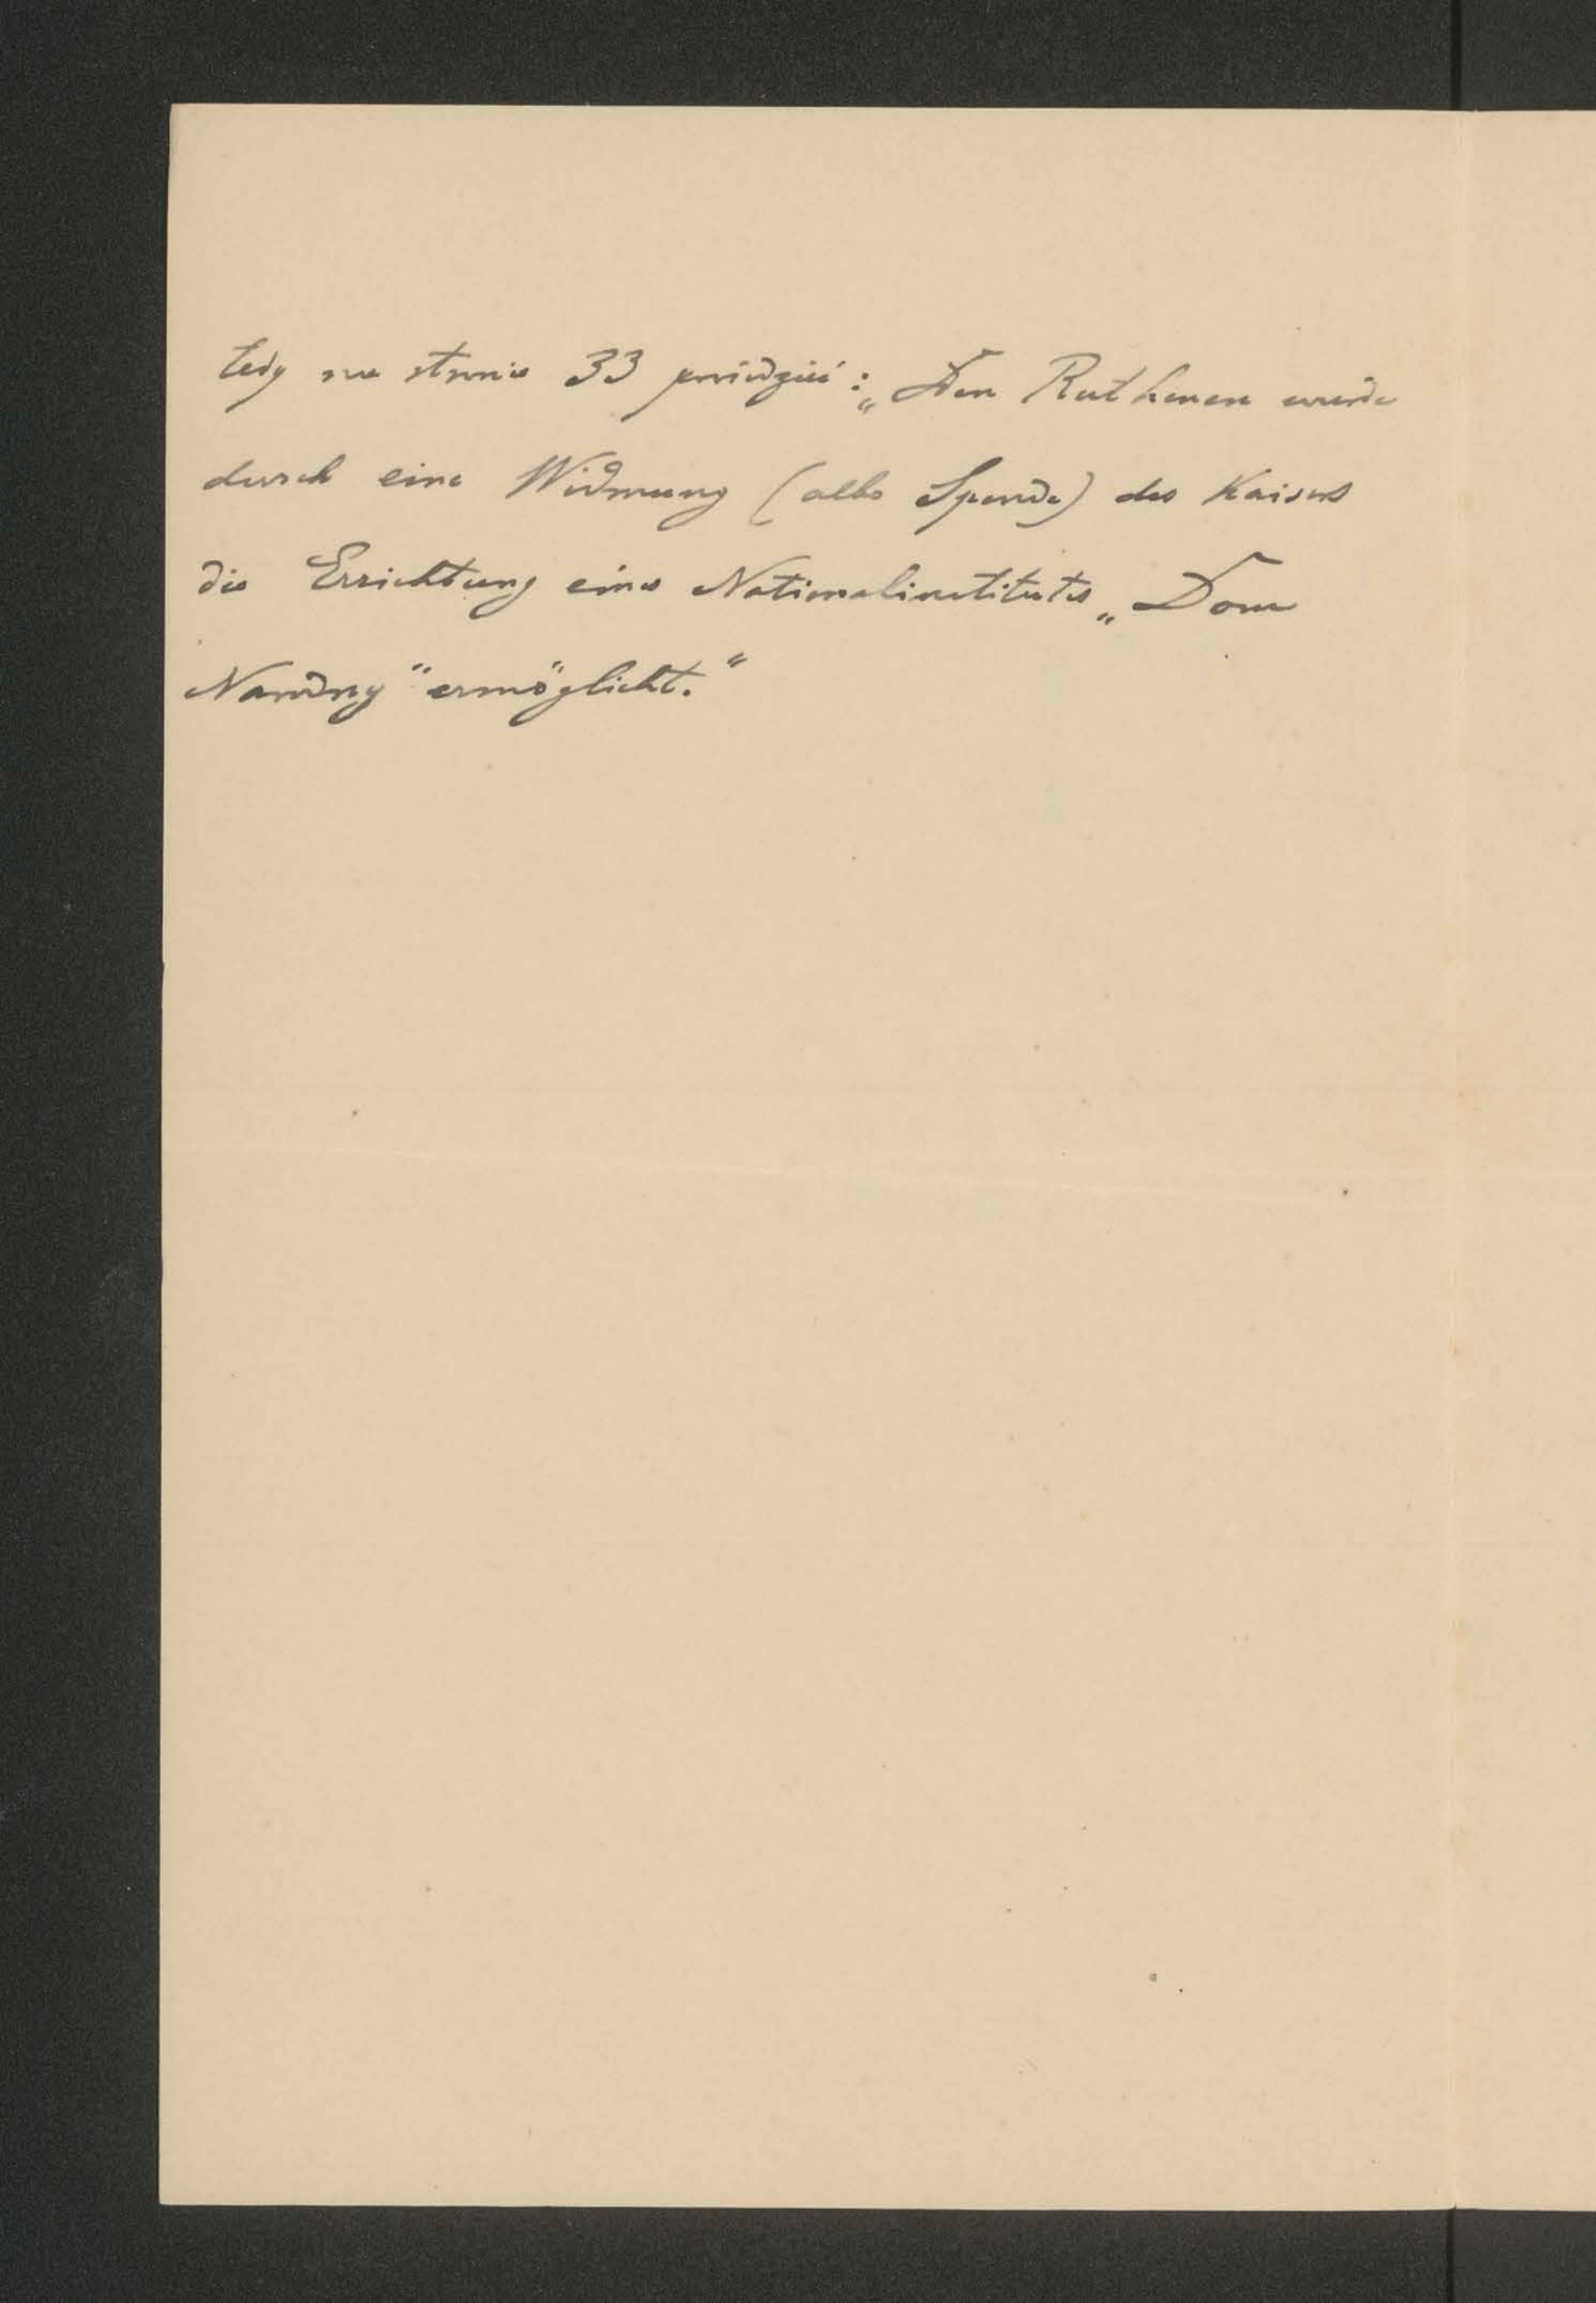 tedy na stronie 33 powiedzieć: „Den Ruthenen wurde
durch eine Widmung (albo Spende) des Kaisers
die Errichtung eines Nationalinstituts „Dom
Narodny“ ermöglicht.“